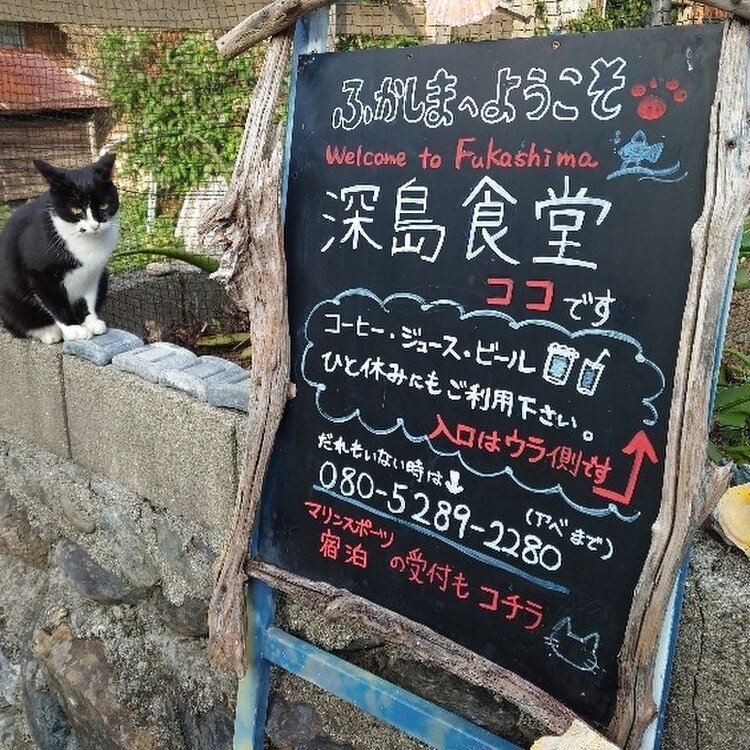 ふかしまへようこそ
Welcome to Fukashima
深島食堂
ココです
コーヒー・ジュース・ビール
ひと休みにもご利用下さい。
入口はウライ側です
だれもいない時は
080-5289-2280
(アベまで)
マリンスポーツ
宿泊 の受付も コチラ